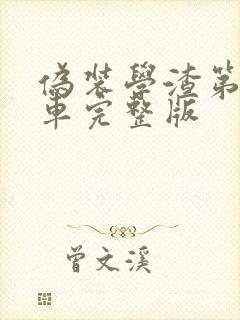 偽裝學渣第
車完整版
曾文溪